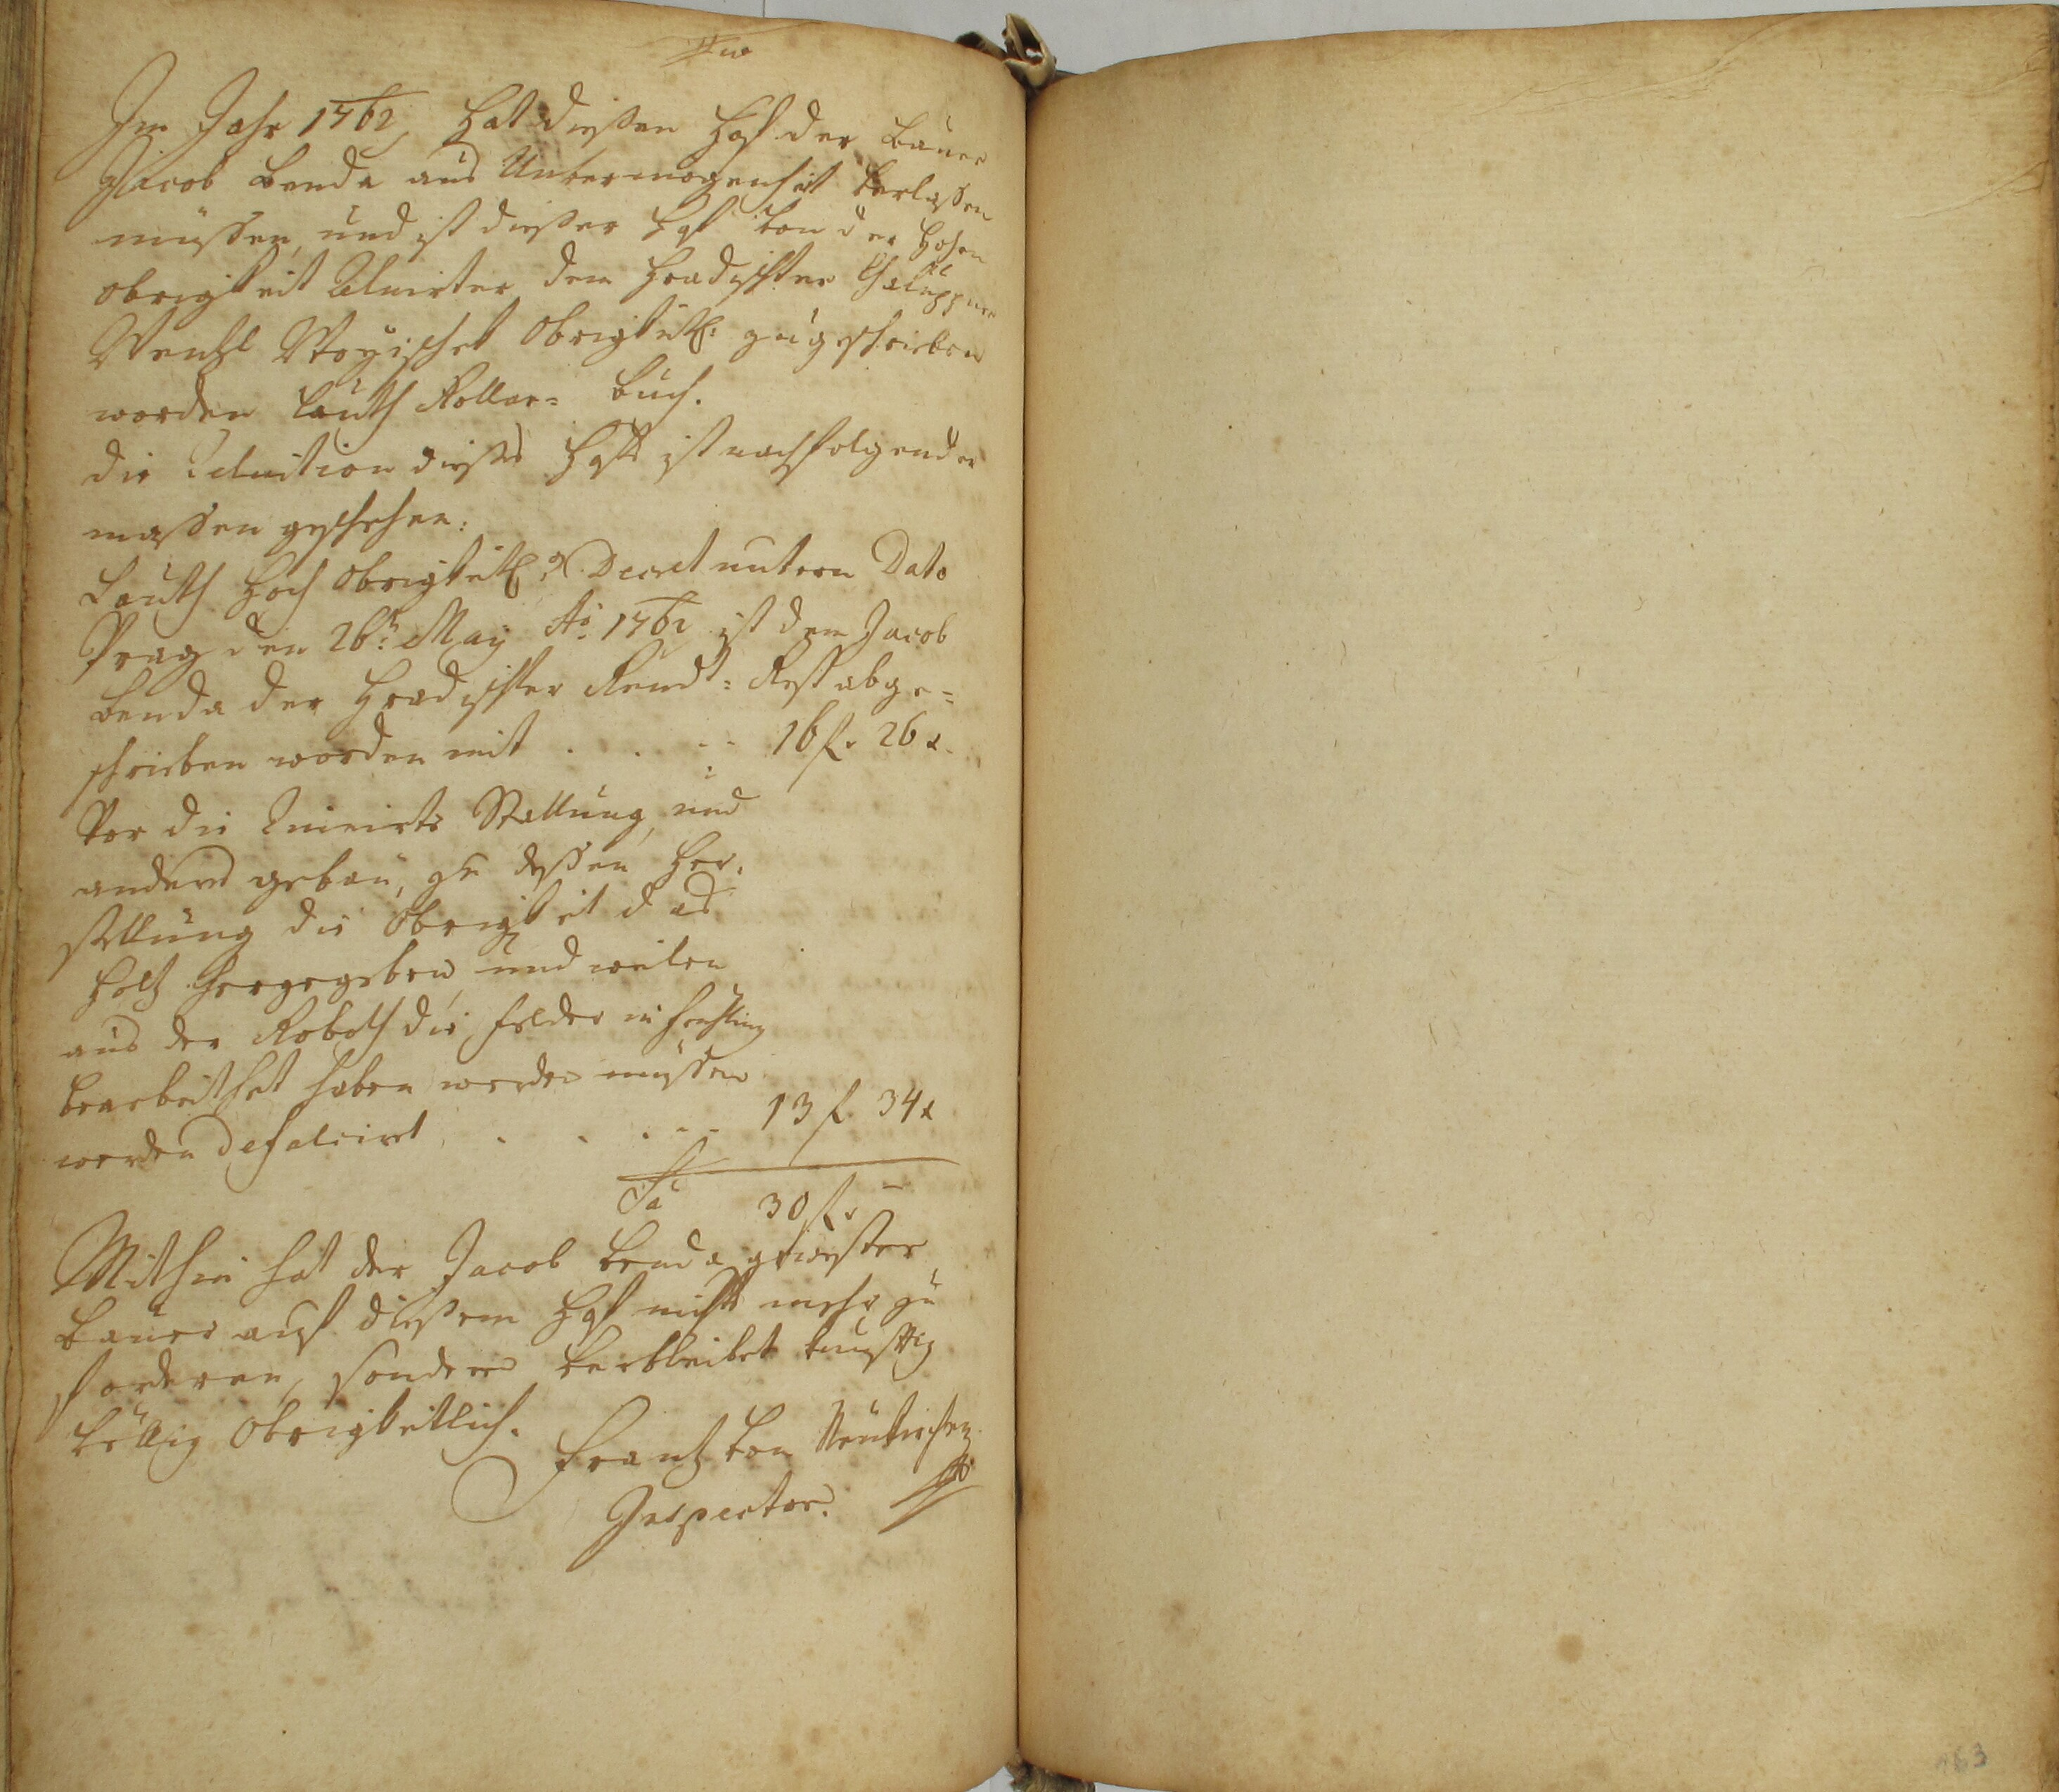 Im Jahr 1762 hat diesen Hof der Bauer
Jacob Benda aus Unvermögenheit verlassen
müssen, und ist dieser Hof von der Hohen
Obrigkeit dem Hradischter Chaluppner
Wentzl Obrigkeitl: zugeschrieben
worden lauth Rollar= Buch.
die Reluition dieses Hofs ist nachfolgender
massen geschehen:
Lauth Hoch Obrigkeitl: Decret untern Dato
Prag den 26t: May Ao: 1762 ist dem Jacob
Benda der Hradischter Rendt= Rest abge=
schrieben worden mit . . . . 16 f. 26 x.
Vor die Ruinirte Stallung, und
anders gebäu, zu dessen Her,
stellung die Obrigkeit das
Holtz hergegeben, und weilen
aus der Roboth die felder in
bearbeithet haben werden müssen
werden defalcirt . . . . 13 f. 34 x
Sa 30 f. –
Mithin hat der Jacob Benda gewester
Bauer auf diesem Hof nichts mehr zu
forderen, sondern verbleibet künfftig
völlig Obrigkeitlich.
Frantz von Neukirchen
Inspector.
163